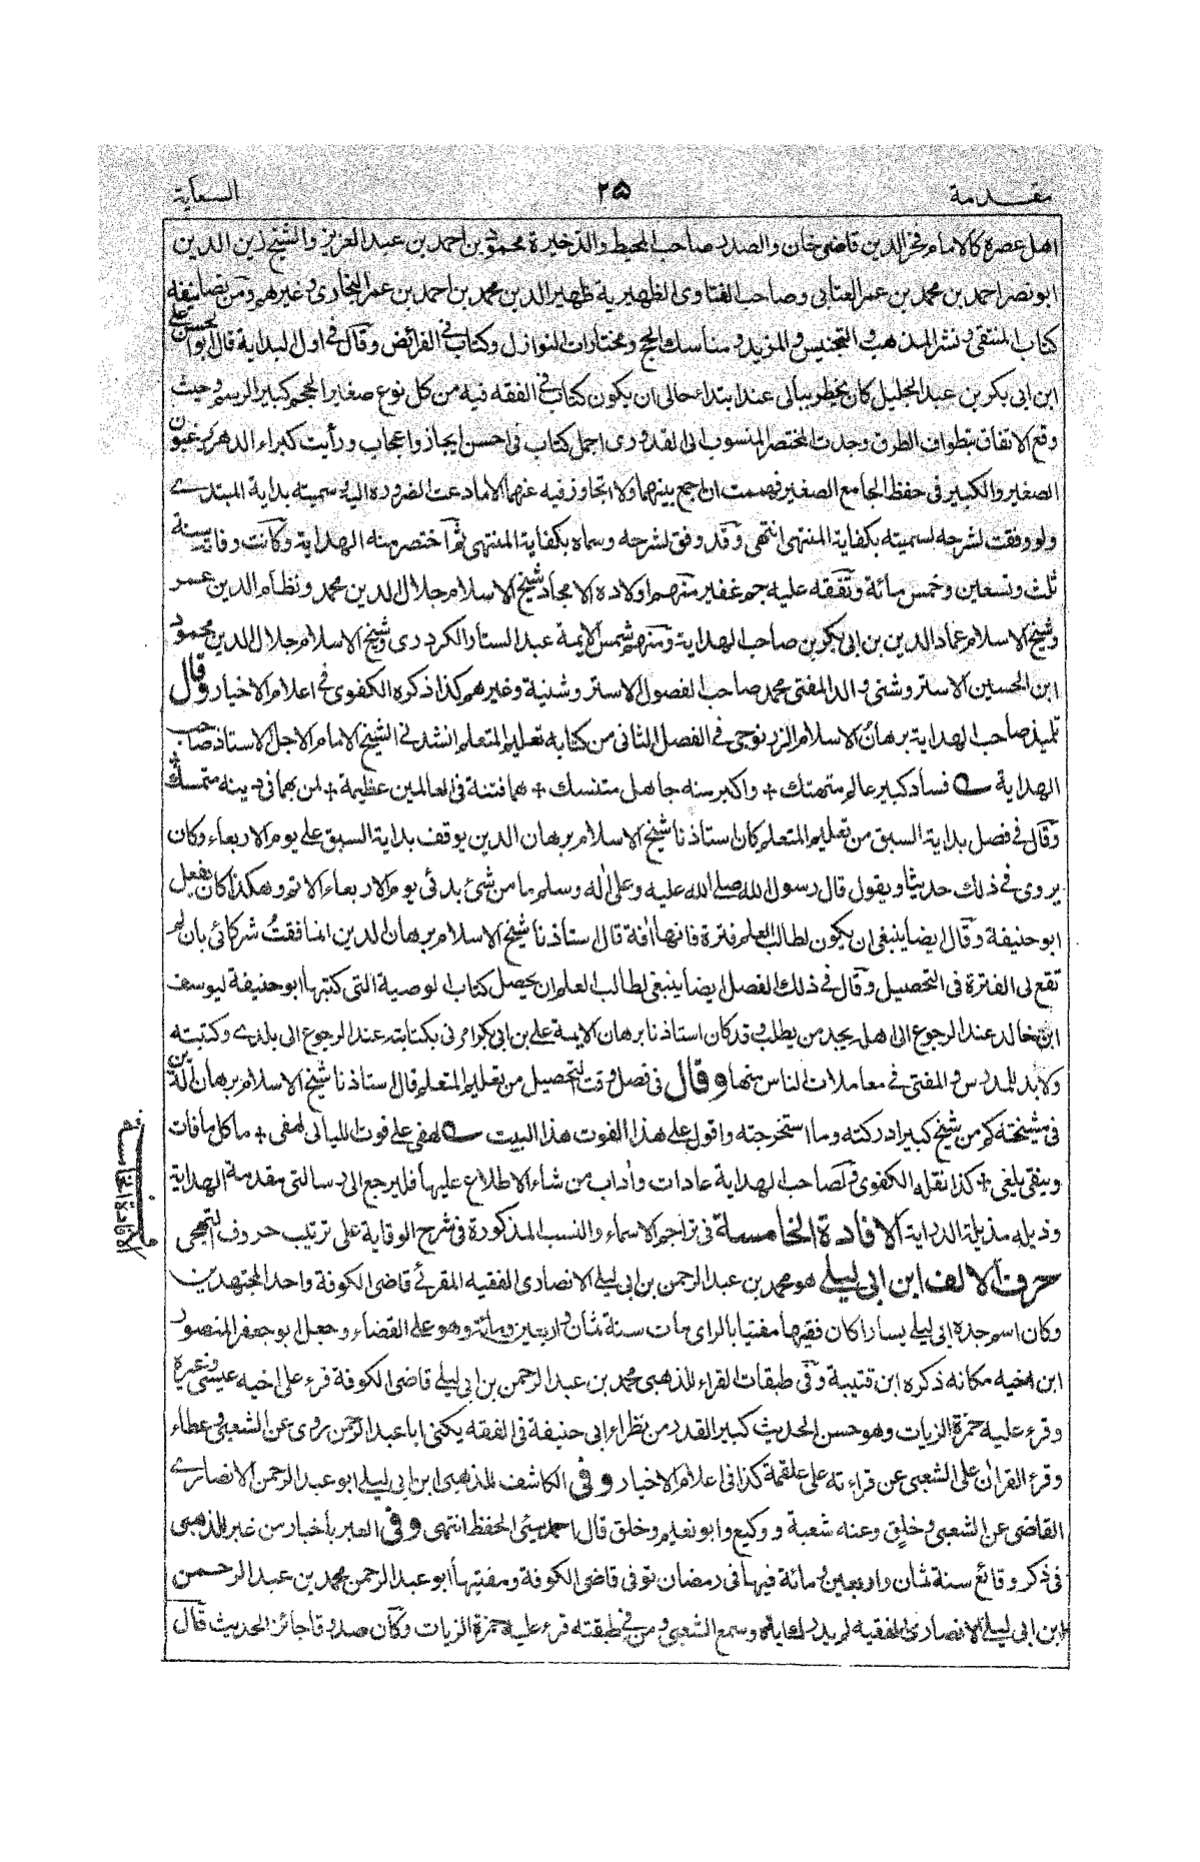 مقدمة ٢٥ السعاية
اهل عصره كالامام فخر الدين قاضى خان والصدر صاحب المحيط والذخيرة محمود بن احمد بن عبد العزيز والشيخ زين الدين
ابو نصر احمد بن محمد بن عمر العتابى وصاحب الفتاوى الظهيرية ظهير الدين محمد بن احمد بن عمر البخارى وغيرهم ومن تصانيفه
كتاب المنتقى ونشر المذهب والتجنيس والمزيد ومناسك الحج ومختارات النوازل وكتاب فى الفرائض وقال فى اول البداية قال ابو الحسن على
ابن ابى بكر بن عبد الجليل كان يخطر ببالى عند ابتداء حالى ان يكون كتاب فى الفقه فيه من كل نوع صغير الحجم كبير الرسم وحيث
وقع الاتفاق بتطواف الطرق وجدت المختصر المنسوب الى القدورى اجمل كتاب فى احسن ايجاز واعجاب ورأيت كبراء الدهر يرغبون
الصغير والكبير فى حفظ الجامع الصغير فهممت ان اجمع بينهما ولا اتجاوز فيه عنهما الا ما دعت الضرورة اليه وسميته بداية المبتدے
ولو وفقت لشرحه لسميته بكفاية المنتهى انتهى وقد وفق لشرحه وسماه بكفاية المنتهى ثم اختصر منه الهداية وكانت وفاته سنة
ثلث وتسعين وخمس مائة وتفقه عليه جم غفير منهم اولاده الامجاد شيخ الاسلام جلال الدين محمد ونظام الدين عمر
وشيخ الاسلام عماد الدين بن ابى بكر بن صاحب الهداية ومنهم شمس الايمة عبد الستار الكردرى وشيخ الاسلام جلال الدين محمود
ابن الحسين الاستروشنى والد المفتى محمد صاحب الفصول الاستروشنية وغيرهم كذا ذكره الكفوى فى اعلام الاخيار وقال
تلميذ صاحب الهداية برهان الاسلام الزرنوجى فى الفصل الثانى من كتابه تعليم المتعلم انشدنى الشيخ الامام الاجل الاستاذ صاحب
الهداية ؎ فساد كبير عالم متهتك + واكبر منه جاهل متنسك + هما فتنة فى العالمين عظيمة + لمن بهما فى دينه متمسك
وقال فى فصل بداية السبق من تعليم المتعلم كان استاذنا شيخ الاسلام برهان الدين يوقف بداية السبق على يوم الاربعاء وكان
يروى فى ذلك حديثا ويقول قال رسول الله صلے الله عليه وعلى اله وسلم ما من شئ بدئ يوم الاربعاء الا تم وهكذا كان يفعل
ابو حنيفة وقال ايضا ينبغى ان يكون لطالب العلم فترة فانها افة قال استاذنا شيخ الاسلام برهان الدين انما فقت شركائى بان لم
تقع لى الفترة فى التحصيل وقال فى ذلك الفصل ايضا ينبغى لطالب العلم ان يحصل كتاب الوصية التى كتبها ابو حنيفة ليوسف
ابن خالد عند الرجوع الى اهله يجد من يطلب وقد كان استاذنا برهان الايمة على بن ابى بكر امرنى بكتابته عند الرجوع الى بلدے وكتبته
ولا بد للمدرس والمفتى فى معاملات الناس منها وقال فى فصل وقت التحصيل من تعليم المتعلم قال استاذنا شيخ الاسلام برهان الدين
فى مشيخته كم من شيخ كبير ادركته وما استخرجته واقول على هذا الفوت هذا البيت ؎ لهفى على فوت الليالى لهفى + ما كل ما فات
ويبقى يلغى + كذا نقله الكفوى ولصاحب الهداية عادات واداب من شاء الاطلاع عليها فليرجع الى رسالتى مقدمة الهداية
وذيله مذيلة الدراية الافادة الخامسة فى تراجم الاسماء والنسب المذكورة فى شرح الوقاية على ترتيب حروف التهجى
حرف الالف ابن ابى ليلے هو محمد بن عبد الرحمن بن ابى ليلے الانصارى الفقيه المقرئ قاضى الكوفة واحد المجتهدين
وكان اسم جده ابى ليلے يسارا كان فقيها مفتيا بالراى مات سنة ثمان واربعين ومائة وهو على القضاء وجعل ابو جعفر المنصور
ابن اخيه مكانه ذكره ابن قتيبة وفى طبقات القراء للذهبى محمد بن عبد الرحمن بن ابى ليلے قاضى الكوفة قرء على اخيه عيسى وغيره
وقرء عليه حمزة الزيات وهو حسن الحديث كبير القدر من نظراء ابى حنيفة فى الفقه يكنى ابا عبد الرحمن روى عن الشعبى وعطاء
وقرء القران على الشعبى عن قراءته على علقمة كذا فى اعلام الاخيار وفى الكاشف للذهبى ابن ابى ليلے ابو عبد الرحمن الانصارے
القاضى عن الشعبى وخلق وعنه شعبة ووكيع وابو نعيم وخلق قال احمد سيئ الحفظ انتهى وفى العبر باخبار من غبر للذهبى
فى ذكر وقائع سنة ثمان واربعين ومائة فيها فى رمضان توفى قاضى الكوفة ومفتيها ابو عبد الرحمن محمد بن عبد الرحمن
ابن ابى ليلے الانصارى الفقيه لم يدرك اباه وسمع الشعبى ومن فى طبقته قرء عليه حمزة الزيات وكان صدوقا جائز الحديث قال
الافادة الخامسة